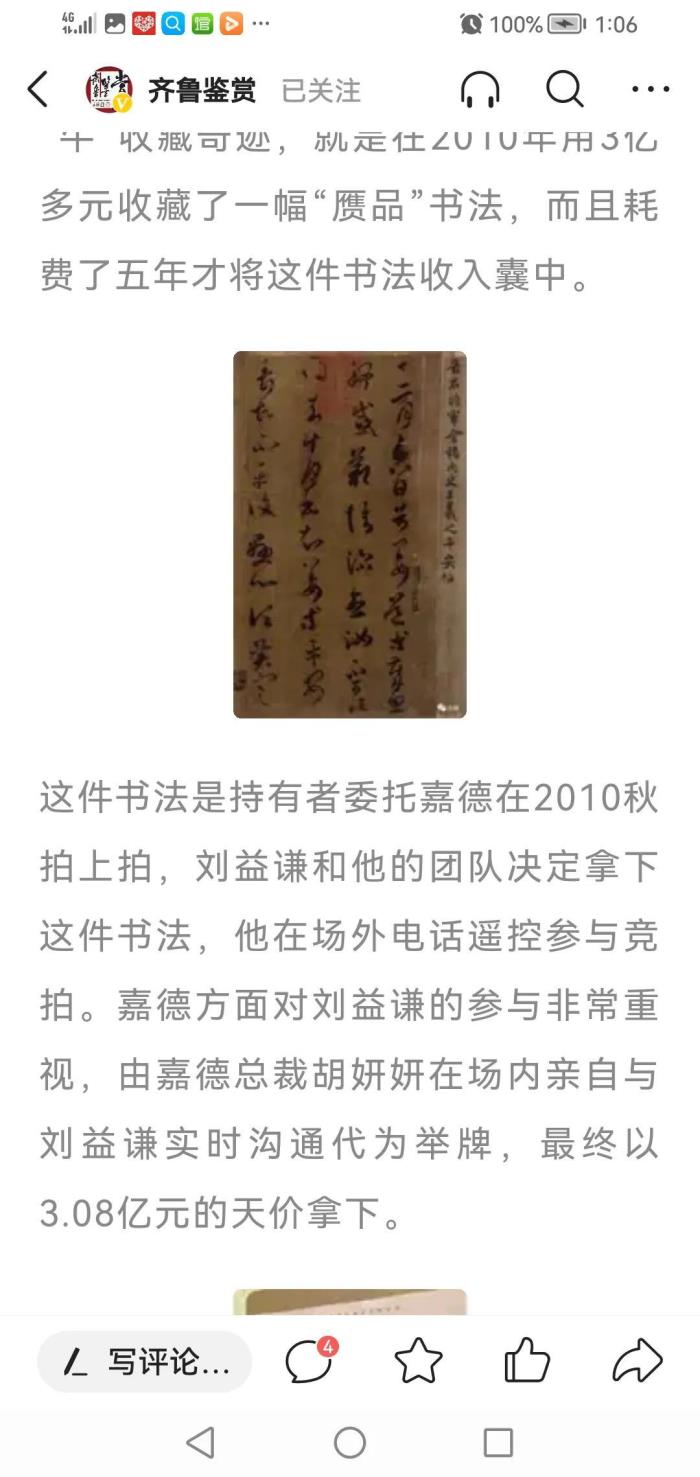 4G
100%
1:06
齐鲁鉴赏
已关注
收藏奇迹,就是在2010年用3亿
多元收藏了一幅“赝品”书法,而且耗
费了五年才将这件书法收入囊中。
晋右将军会稽内史王羲之平安帖
这件书法是持有者委托嘉德在2010秋
拍上拍,刘益谦和他的团队决定拿下
这件书法,他在场外电话遥控参与竞
拍。嘉德方面对刘益谦的参与非常重
视,由嘉德总裁胡妍妍在场内亲自与
刘益谦实时沟通代为举牌,最终以
3.08亿元的天价拿下。
写评论...
4